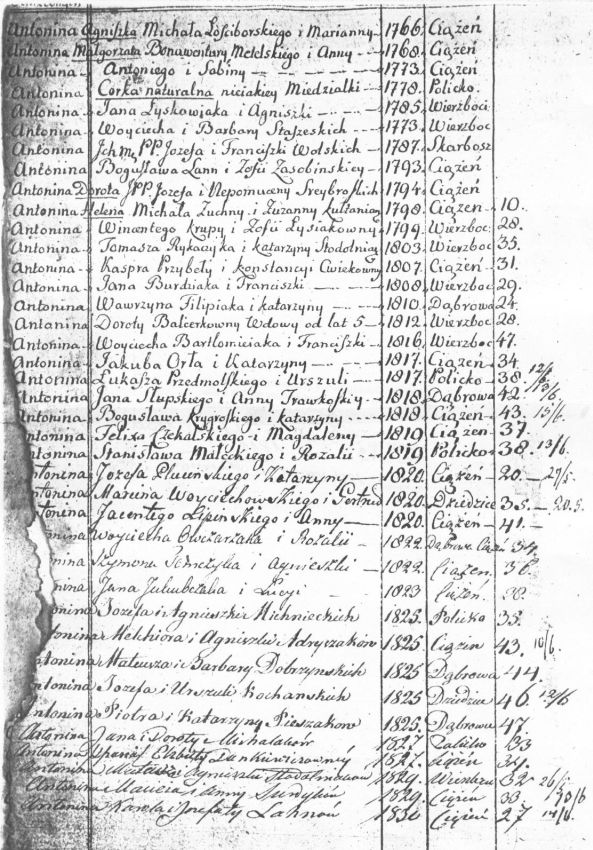 Antonina Agniszka Michała Łosiborskiego i Marianny 1766. Ciążeń
Antonina Małgorzata Bonawentury Metelskiego i Anny 1768. Ciążeń
Antonina Antoniego i Sabiny 1773. Ciążeń
Antonina Corka naturalna niciakiey Miedzialki 1778. Policko.
Antonina Jana Łyskowiaka i Agniszki 1785. Wierzboc
Antonina Woyciecha i Barbary Staszeskich 1773. Wierzboc
Antonina Jozefa i Franciszki Wolskich 1787. Skarbosz
Antonina Bogusława Lann i Zofii Zasobinskiey 1793. Ciążeń
Antonina Dorota JPP. Jozefa i Nepomuceny Sreybroskich 1794. Ciążeń
Antonina Helena Michała Zuchny i Zuzanny 1798. Ciążeń 10.
Antonina Wincentego krupy i Zofii Łysiakowny 1799. Wierzboc 28.
Antonina Tomasza Rykaczyka i katarzyny Stodolniey 1803 Wierzboc 35.
Antonina Kaspra Przybeły i konstancyi Cwiekowny 1807. Ciążeń 31.
Antonina Jana Burdziaka i Franciszki 1808. Wierzboc 29.
Antonina Wawrzyna Filipiaka i katarzyny 1810. Dąbrowa 24.
Antonina Doroty Balcerkowny Wdowy od lat 5 1812. Wierzboc 28.
Antonina Woyciecha Bartlomieiaka i Franciszki 1816. Wierzboc 47.
Antonina Jakuba Orła i Katarzyny 1817. Ciążeń 34.
Antonina Lukasza Przedmolskiego i Urszuli 1817. Policko 38. 12/6
Antonina Jana Słupskiego i Anny Trawkoskiy 1818. Dąbrowa 42. 13/6.
Antonina Bogusława krygroskiego i katarzyny 1818 Ciążeń 43. 15/6.
Antonina Felixa Czekalskiego i Magdaleny 1819 Ciążeń 37.
Antonina Stanisława Małeckiego i Rozalii 1819 Policko 38. 13/6.
ntonina Jozefa Plucinskiego i Katarzyny 1820. Ciążeń 20. 27/5.
ntonina Marcina Woyciechowskiego i Gertrud 1820. Dziedzice 35. 20.5.
ntonina Jacentego Lipinskiego i Anny 1820. Ciążeń 41.
onina Woyciecha Owczarzaka i Rozalii 1822. Dąbrowa Ciążeń 34.
nina Szymona i Agnieszki 1822. Ciążeń 36.
nina Jana Jakubczaka i Lucyi 1823 Ciążeń
onina Jozefa i Agnieszki Michnieckich 1825. Policko 35.
tonina Melchiora i Agniszki Adryszaków 1825. Ciążeń 43. 10/6.
ntonina Mateusza i Barbary Dobrzynskich 1825 Dąbrowa 44.
ntonina Jozefa i Urszuli Kochanskich 1825 Dziedzice 46. 12/6
ntonina Piotra i Katarzyny Pieszaków 1825. Dąbrowa 47.
Antonina Jana i Doroty Michalaków 1827. 33
Antonina Elżbiety 1827. Ciążeń 34.
Antonina Mateusza i Agniszki 1829. 32 26/5
Antonina Macieia i Anny 1829. Ciążeń 33
Antonina Karola i Jozefaty Lahnów 1830 Ciążeń 27